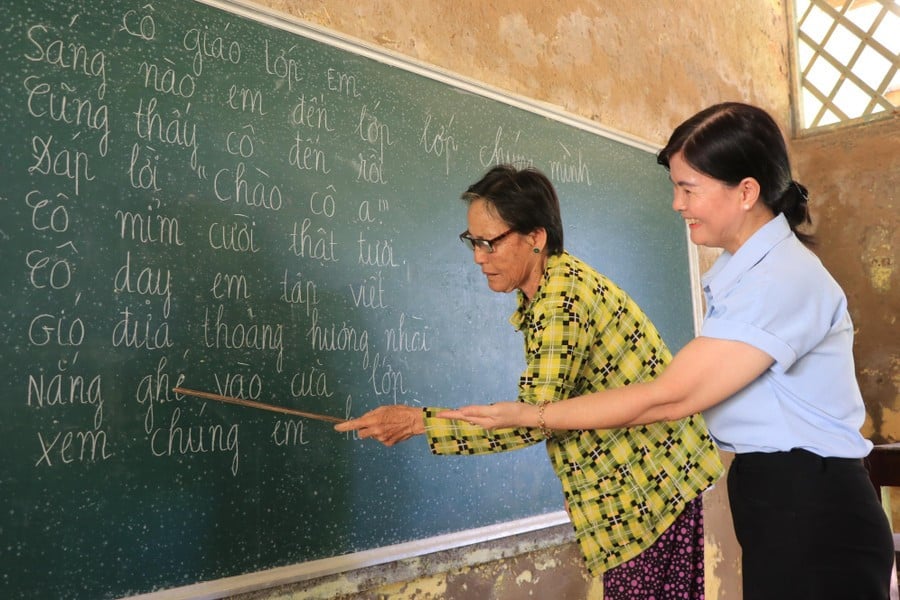 Cô giáo lớp em
Sáng nào em đến lớp
lớp chúng mình
Cũng thấy cô đến rồi
Đáp lời "Chào cô ạ"
Cô mỉm cười thật tươi.
Cô dạy em tập viết
Gió đưa thoảng hương nhài
Nắng ghé vào cửa lớp
xem chúng em